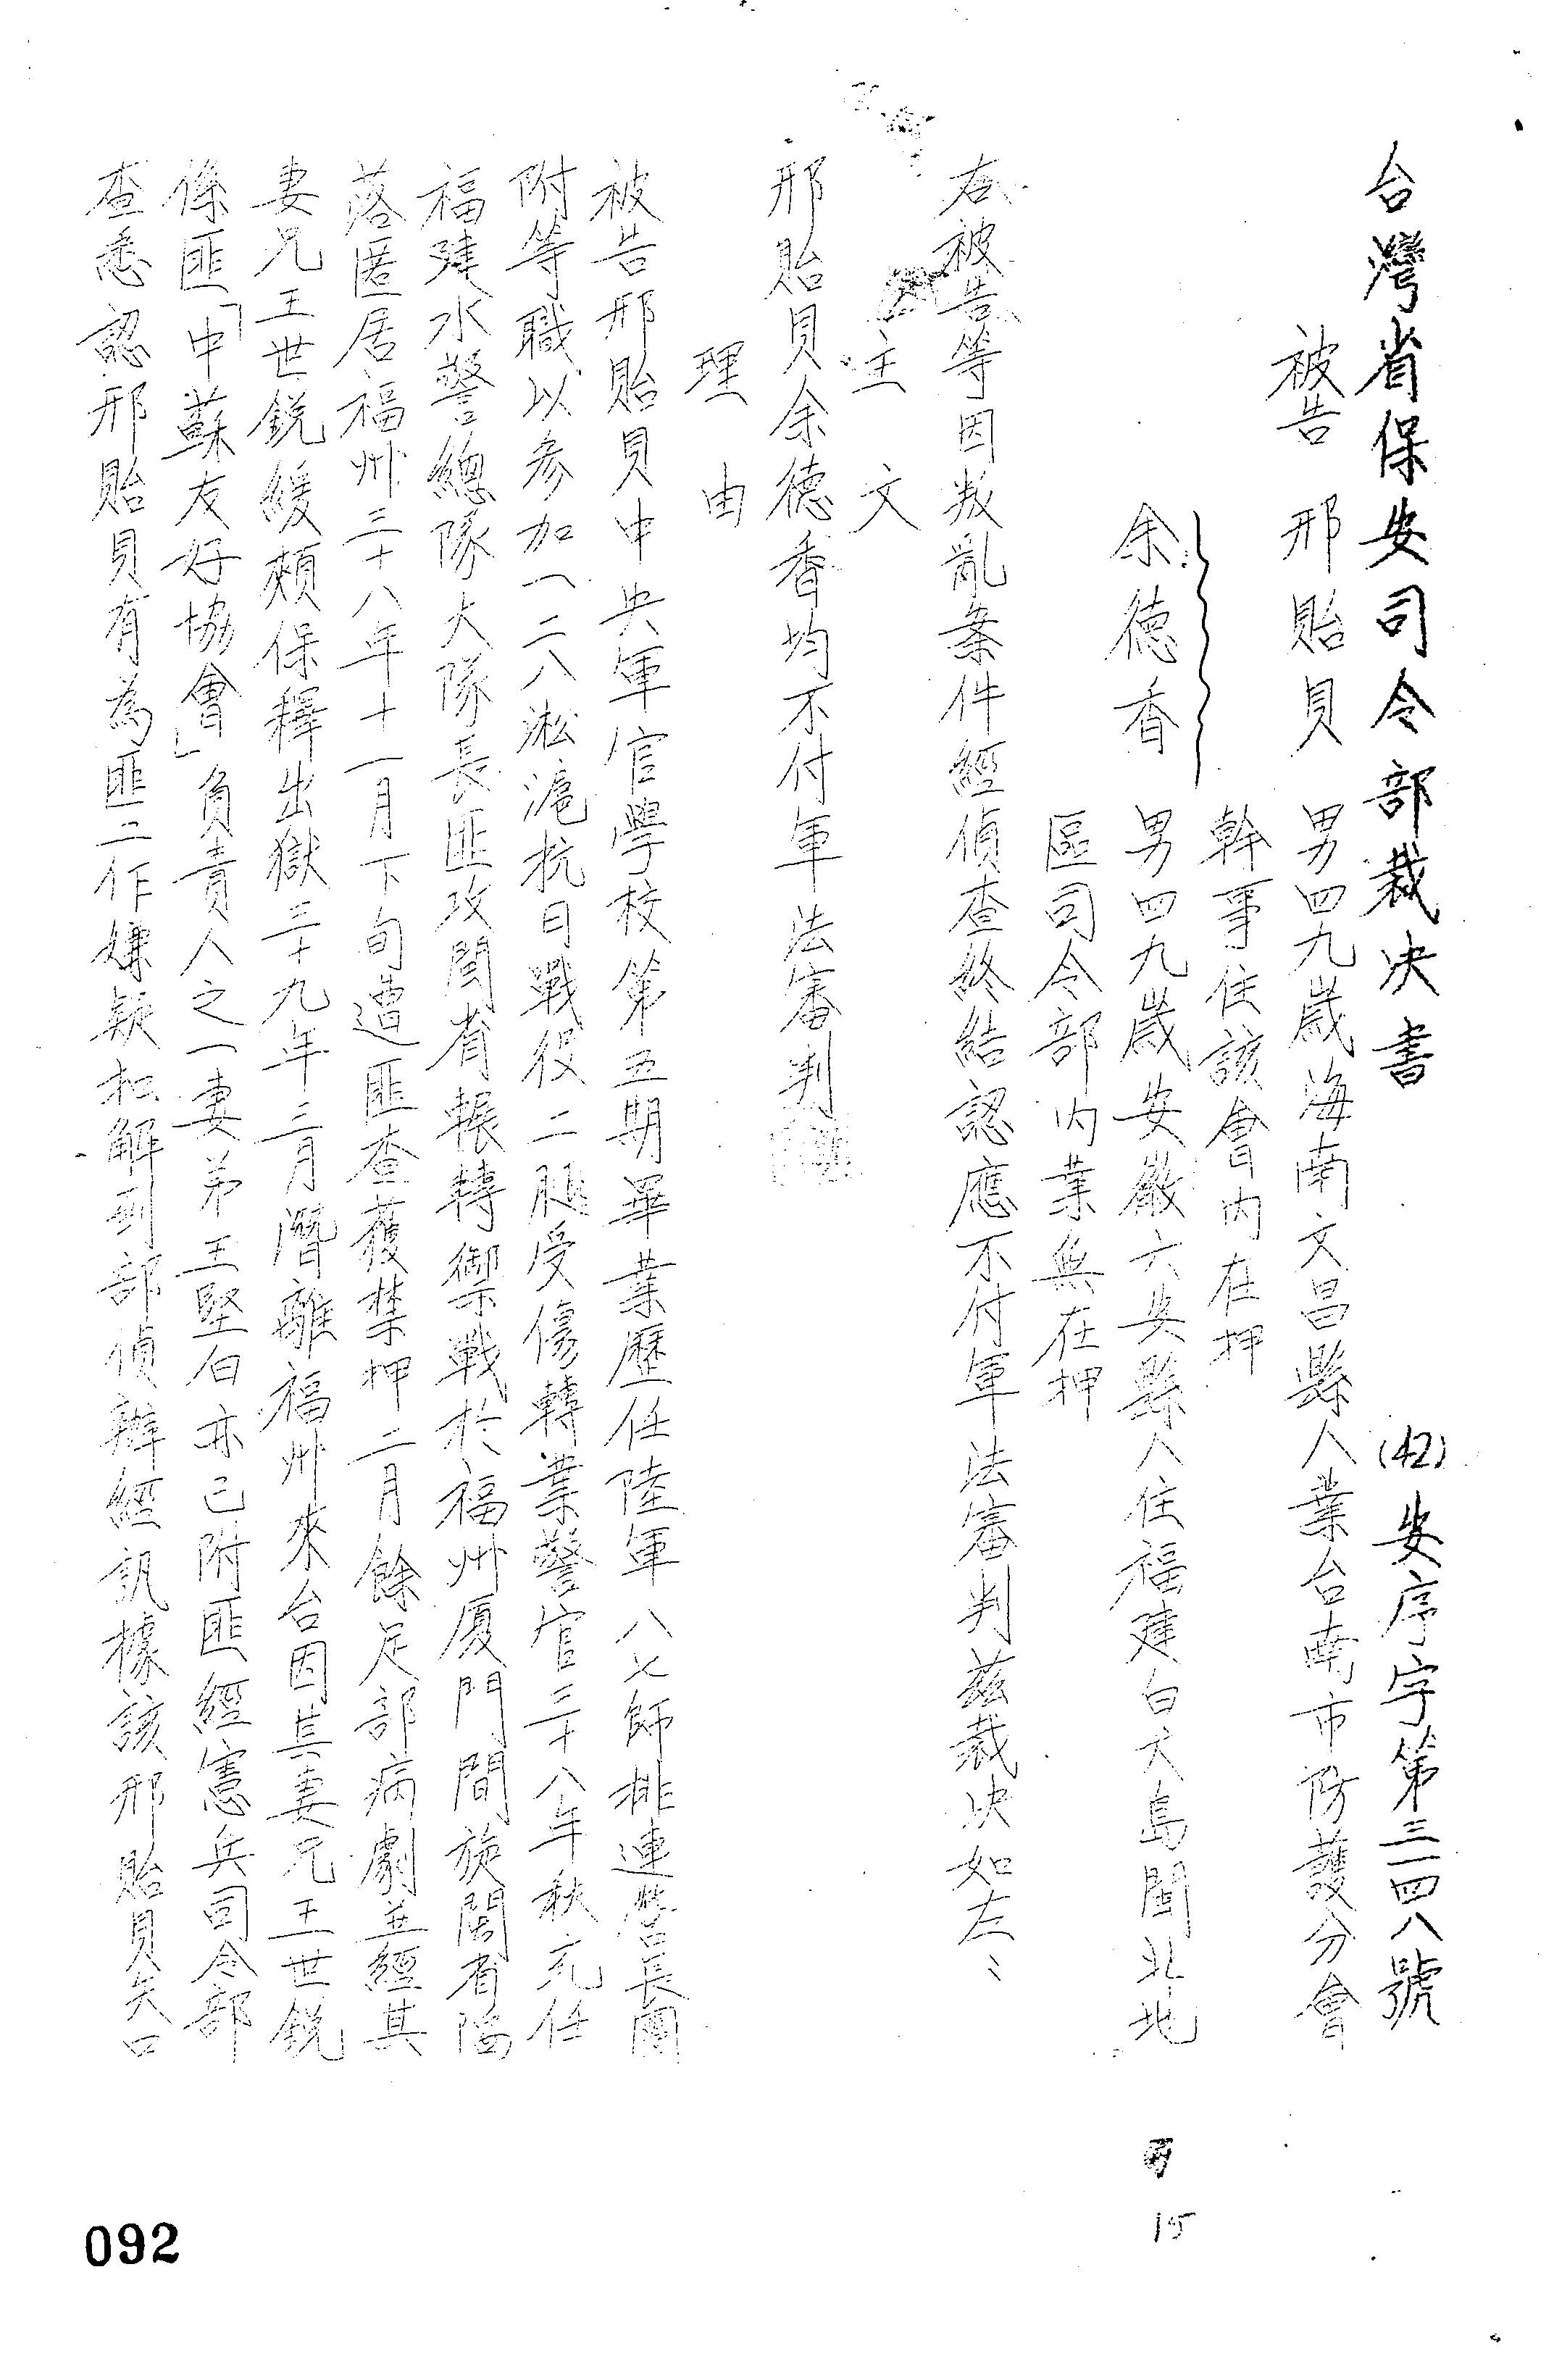 台灣省保安司令部裁決書 (42)安序字第三一四八號
被告 邢貽貝 男四九歲海南文昌縣人業台南市防護分會
幹事住該會內在押
余德香 男四九歲安徽六安縣人住福建白犬島閩北地
區司令部內業無在押
右被告等因叛亂案件經偵查終結認應不付軍法審判茲裁決如左、
主文
邢貽貝余德香均不付軍法審判
理由
被告邢貽貝中央軍官學校第五期畢業歷任陸軍八七師排連營長團
附等職以參加一二八淞滬抗日戰役二腿受傷轉業警官三十八年秋充任
福建水警總隊大隊長匪攻閩省輾轉禦戰於福州廈門間旋閩省陷
落匿居福州三十八年十一月下旬遭匪查獲禁押二月餘足部病劇並經其
妻兄王世銳緩頰保釋出獄三十九年三月潛離福州來台因其妻兄王世銳
係匪「中蘇友好協會」負責人之一妻弟王堅白亦已附匪經憲兵司令部
查悉認邢貽貝有為匪工作嫌疑扣解到部偵辦經訊據該邢貽貝矢口
15
092